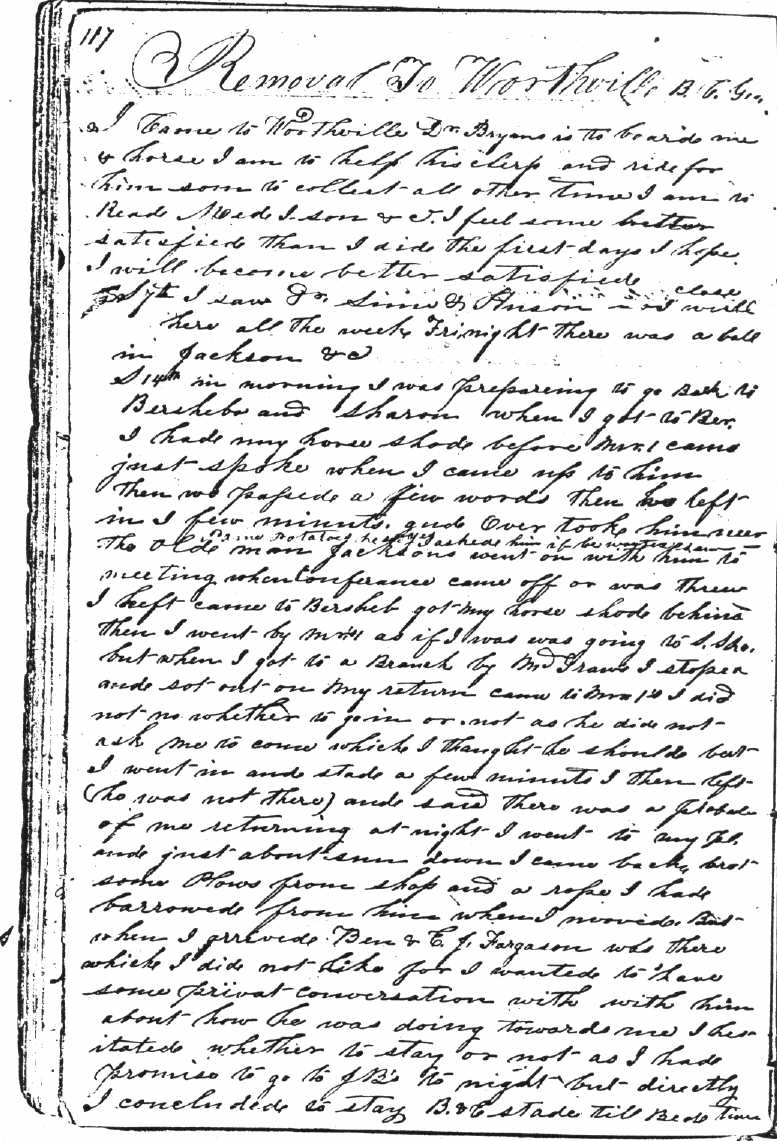 117
Removal To Worthville B. C. Geo,
I Came to Worthville Dr. Bryans is to board me
& horse I am to help his clerp and ride for
him som to collect all other time I am to
Read Medi I son & c. I feel some better
satisfiede than I did the first days I hope
I will become better satisfiede close
S 7th I saw Dr. Sims & Anson I will
here all the week, Fri, night there was a ball
in Jackson & c
S 14th in morning I was prepareing to go Back to
Bersheba and Sharon when I got to Ber.
I hade my horse shode before Mr. 1 came
just spoke when I came up to him
then we passede a few words then he left
in I few minuts. gude Over tooke him neer
Some Potatoes he says I askede him if he wanted
the Olde man Jacksons went on with him to
meeting when Conferance came off or was threw
I left came to Bersheb got my horse shode behind
then I went by Mr. 1 as if I was was going to S. Sho.
but when I got to a Branch by Md Traws I stope
ande sot out on my return came to Mr 1s I did
not no whether to go in or not as he did not
ask me to come which I thaught he shoulde but
I went in ande stade a few minuts I then left
(he was not there) ande said there was a
of me returning at night I went to my pl.
ande just about sun down I came back, brot
some Plows from shop and a rope I hade
barrowede from him when I moovide. But
when I arrivede Ben & E. J. Fargason was there
which I did not like for I wantede to have
some privat conversation with with him
about how he was doing towards me I hes-
itatede whether to stay or not as I hade
promise to go to J B's to night but directly
I concludede to stay B. & E stade till Bede time